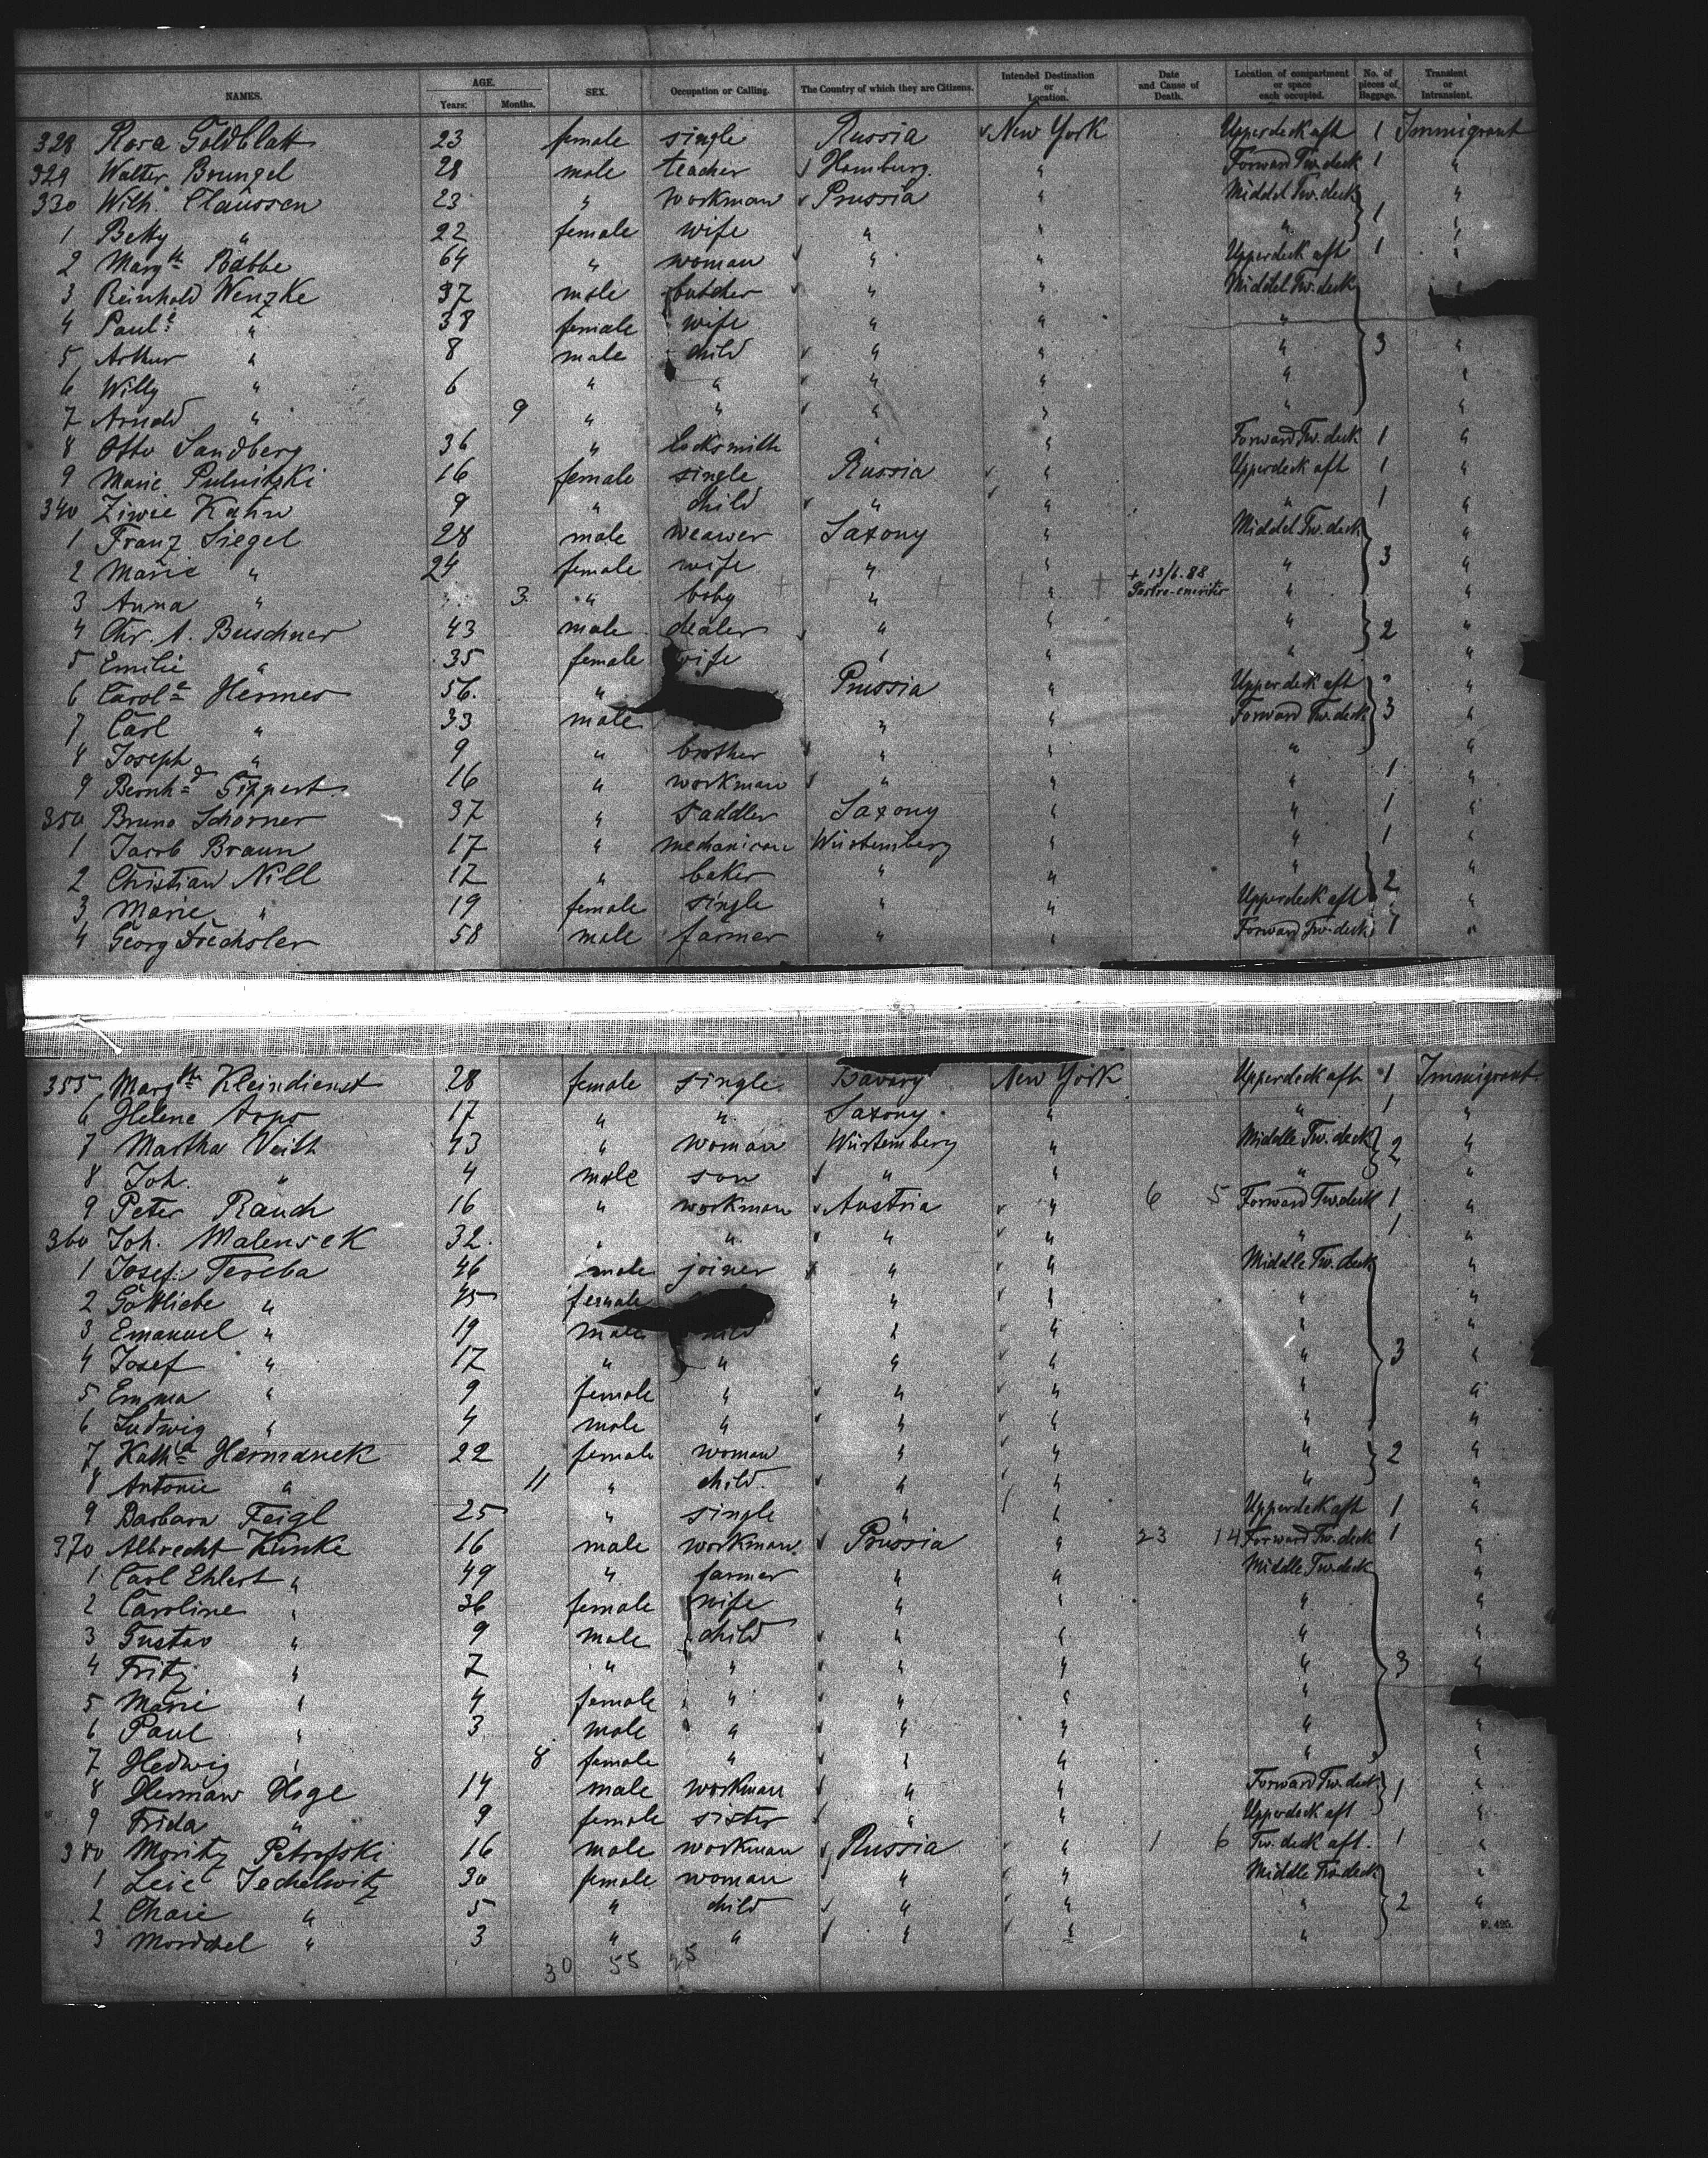 NAMES. AGE. Years: Months. SEX. Occupation or Calling. The Country of which they are Citizens. Intended Destination or Location. Date and Cause of Death. Location of compartment or space each occupied. No. of pieces of Baggage. Transient or Intransient.
328 Rosa Goldblatt 23 female single Russia New York Upperdeck aft 1 Immigrant
329 Walter Brungel 28 male teacher Hamburg. " Forward Tw. deck 1 "
330 Wilh. Claussen 23 " workman Prussia " Middel Tw. deck 1 "
1 Betty " 22 female wife " " " "
2 Margth Rabbe 64 " woman " " Upperdeck aft 1 "
3 Reinhold Wenzke 37 male butcher " " Middel Tw. deck
4 Paule " 38 female wife " " "
5 Arthur " 8 male child " " " 3 "
6 Willy " 6 " " " " " "
7 Arnold " 9 " " " " " "
8 Otto Sandberg 36 " locksmith " " Forward Tw. deck 1 "
9 Marie Pulnitzki 16 female single Russia " Upperdeck aft 1 "
340 Ziwie Kahn 9 " child " " " 1 "
1 Franz Siegel 28 male weawer Saxony " Middel Tw. deck 3 "
2 Marie " 24 female wife " " " "
3 Anna " 3 " baby " " + 13/6.88 " "
4 Chr. A. Buschner 43 male dealer " " " 2 "
5 Emilie " 35 female wife " " " "
6 Carole Hermes 56. " Prussia " Upperdeck aft "
7 Carl " 33 male " " Forward Tw. deck 3 "
8 Joseph " 9 " brother " " " "
9 Bernhd Gippert 16 " workman " " " 1 "
350 Bruno Schorner 37 " saddler Saxony " " 1 "
1 Jacob Braun 17 " mechanican Würtemberg " " 1 "
2 Christian Nill 17 " baker " " " 2 "
3 Marie " 19 female single " " Upperdeck aft "
4 Georg Drechsler 58 male farmer " " Forward Tw. deck 1 "
355 Margth Kleindienst 28 female single Bavary New York Upperdeck aft 1 Immigrant
6 Helene 17 " " Saxony. " " 1 "
7 Martha Veith 43 " woman Würtemberg " Middle Tw. deck 2 "
8 Joh. " 4 male son " " " "
9 Peter Rauch 16 " workman Austria " 6 5 Forward Tw. deck 1 "
360 Joh. Malensek 32. " " " " " 1 "
1 Josef Tereba 46 male joiner " " Middle Tw. deck "
2 Gottliebe " 45 female " " " "
3 Emanuel " 19 male child " " " "
4 Josef " 17 " " " " " 3 "
5 Emma " 9 female " " " " "
6 Ludwig " 4 male " " " " "
7 Katha Hermanek 22 female woman " " " 2 "
8 Antonie " 11 " child. " " " "
9 Barbara Feigl 25 " single " " Upperdeck aft 1 "
370 Albrecht Kunke 16 male workman Prussia " 23 14 Forward Tw. deck 1 "
1 Carl Ehlert " 49 " farmer " " Middle Tw. deck "
2 Caroline " 36 female wife " " " "
3 Gustav " 9 male child " " " "
4 Fritz " 7 " " " " " 3 "
5 Marie " 4 female " " " "
6 Paul " 3 male " " " " "
7 Hedwig " 8 female " " " " "
8 Herman Hoge 14 male workman " " Forward Tw. deck 1 "
9 Frida " 9 female sister " " Upperdeck aft "
380 Moritz Petrofski 16 male workman Russia " 1 6 Tw. deck aft. 1 "
1 Leie Jechelwitz 30 female woman " " Middle Tw. deck "
2 Chaie " 5 " child " " " 2 "
3 Mordchel " 3 " " " " "
30 55